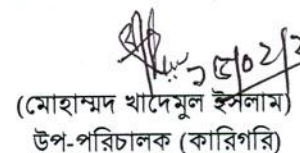 ১৫/০২/২
(মোহাম্মদ খাদেমুল ইসলাম)
উপ-পরিচালক (কারিগরি)